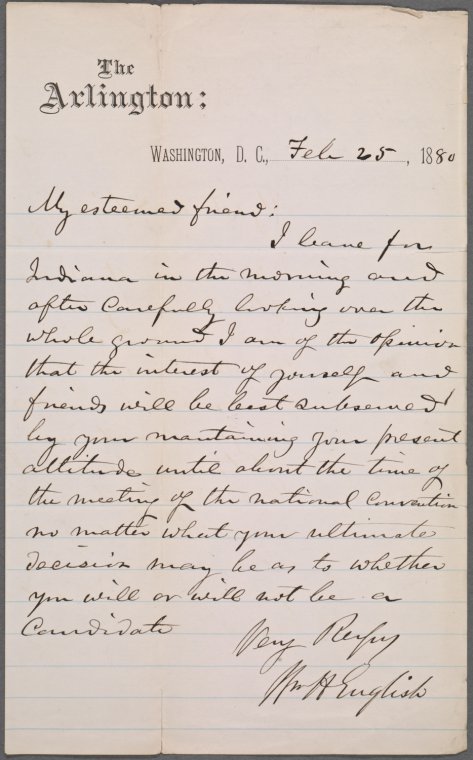 The
Arlington:
WASHINGTON, D. C., Feb 25, 1880
My esteemed friend:
I leave for
Indiana in the morning and
after carefully looking over the
whole ground I am of the opinion
that the interest of yourself and
friends will be best subserved
by your mantaining your present
attitude until about the time of
the meeting of the national convention
no matter what your ultimate
decision may be as to whether
you will or will not be a
Candidate
Very Respy
Wm H English